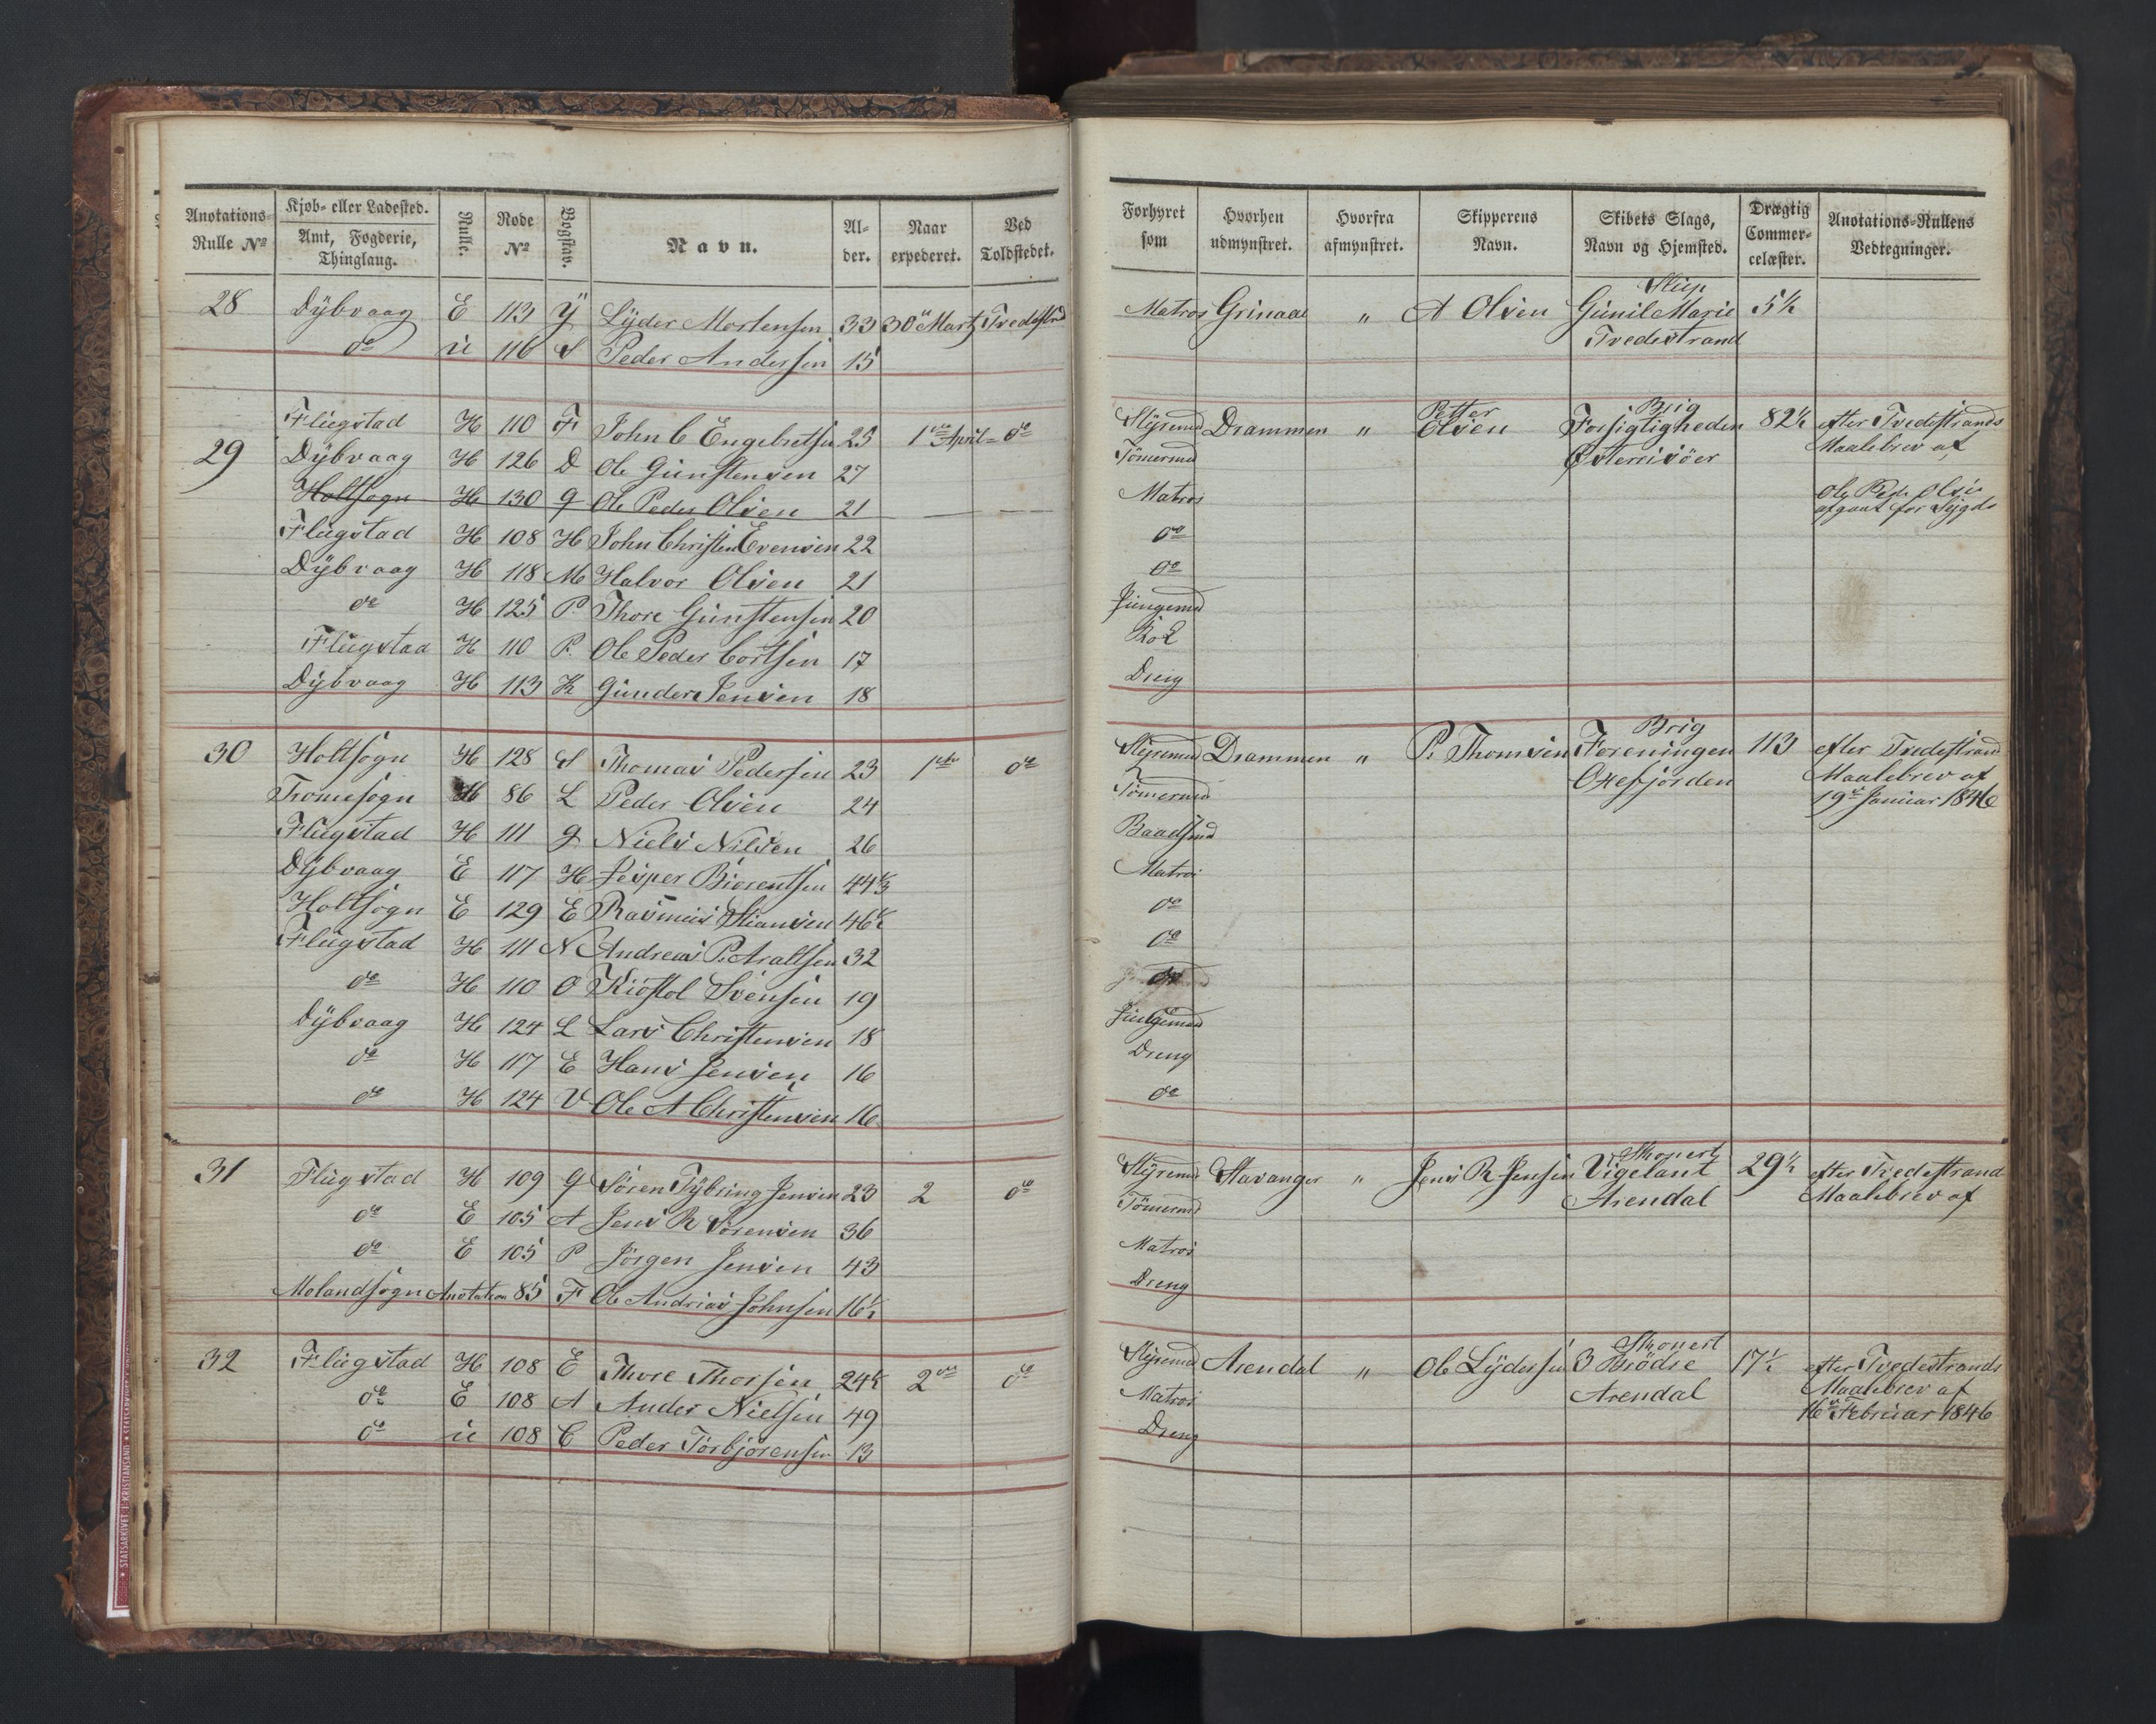 Anotations- Rulle No
Kjøb- eller Ladested.
Amt, Fogderie, Thinglaug.
Rulle.
Rode No
Bogstav.
Navn.
Al- der.
Naar expederet.
Ved Toldstedet.
28 Dÿbvaag E 113 Ÿ Lÿder Mortensen 33 30 Martz Tvedestrd
do ü 116 S Peder Andersen 15
Flügstad H 110 F John C Engebretsen 25 1ste April do
29 Dÿbvaag H 126 D Ole Günstensen 27
Holtsogn H 130 g Ole Peder Olsen 21
Flügstad H 108 H John Christen Evensen 22
Dÿbvaag H 118 M Halvor Olsen 21
do H 125 P. Thore Günstensen 20
Flügstad H 110 P. Ole Peder Cortsen 17
Dÿbvaag H 113 K Günder Jensen 18
30 Holtsogn H 128 S Thomas Pedersen 23 1ste do
Tromesogn H 86 L Peder Olsen 24
Flügstad H 111 g Niels Nilsen 26
Dÿbvaag E 117 H Jesper Biorentsen 44
Holtsogn E 129 E Rasmus Stiansen 46½
Flügstad H 111 N Andreas P. Araltsen 32
do H 110 O Kiöstol Svensen 19
Dÿbvaag H 124 L Lars Christensen 18
do H 117 E Hans Jensen 16
do H 124 V Ole A Christensen 16
31 Flügstad H 109 g Sören Tÿbring Jensen 23 2 do
do E 105 A Jens R Sörensen 36
do E 105 P Jörgen Jensen 43
Molandsogn Anotation 85 F Ole Andrias Johnsen 16½
32 Flügstad H 108 E Thore Thorsen 24½ 2 do
do E 108 A Ander Nielsen 49
do ü 108 C Peder Torbjörensen 13
Forhyret som
Hvorhen udmynstret.
Hvorfra afmynstret.
Skipperens Navn.
Skibets Slags, Navn og Hjemsted.
Drægtig Commer- celæster.
Anotations-Rullens Vedtegninger.
Slup
Matros Grinaae " A Olsen Günil Marie 5½
Tvedestrand
Petter Brig
Stÿremd Drammen " Olsen Forsigtigheden 82½ efter Tvedestrands
Tömermd Østereisöer Maalebrev af
Matros Ole Ped. Olsen
afgaaet for Sÿgd
do
do
Jüngemd
Kok
Dreng
Brig
Stÿremd Drammen " P. Thomsen Foreningen 113 efter Tvedestrand
Tömermd Oxefjorden Maalebrev af
19de Januar 1846
Baadsmd
Matros
do
do
do
Jüngemd
Dreng
do
Skonert
Stÿremd Stavanger " Jens R Jensen Vigelant 29½ efter Tvedestrand
Tömermd Arendal Maalebrev af
Matros
Dreng
Skonert
Stÿremd Arendal " Ole Lÿdersen 3 Brödre 17½ efter Tvedestrands
Matros Arendal Maalebrev af
16de Februar 1846
Dreng
STATSARKIVET I KRISTIANSAND